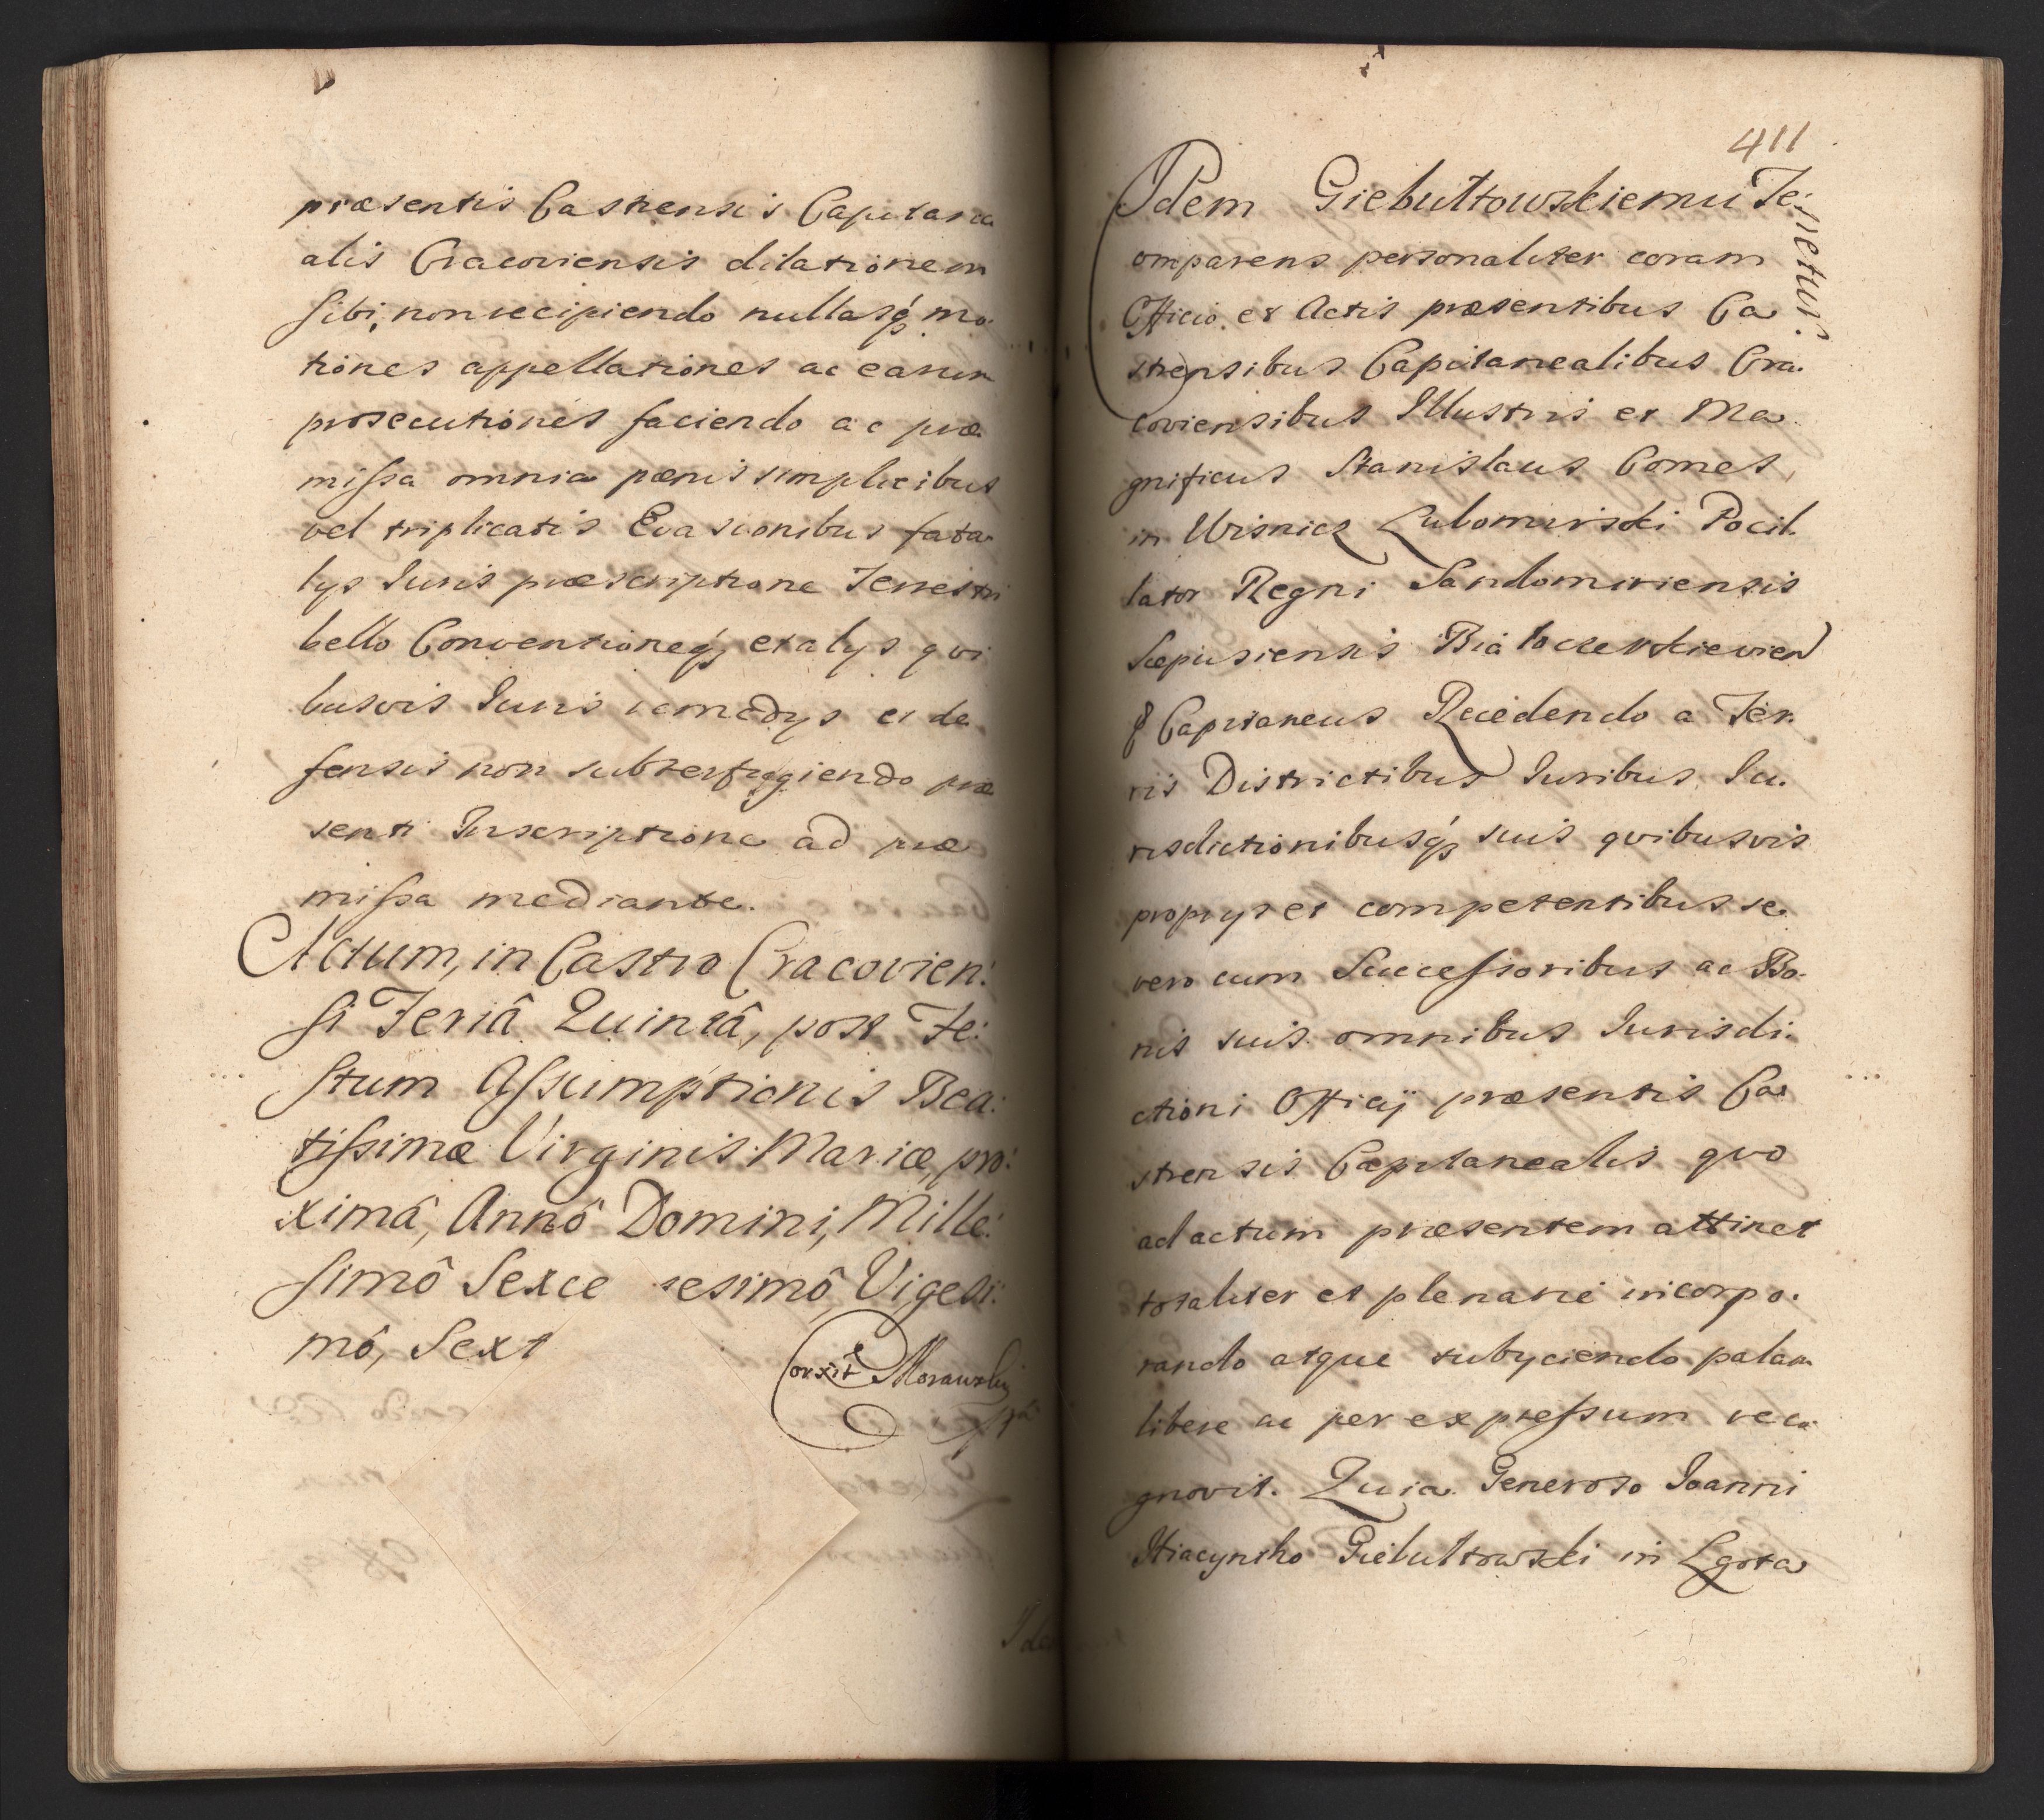 præsentis Castrensis Capitane
alis Cracoviensis dilationem
sibi, non recipiendo nullasq́ꝫ mo
tiones appellationes ac earum
prosecutiones faciendo ac præ
missa omnia pœnis simplicibus
vel triplicatis Evasionibus fata
lys Juris præscriptione Terrestri
bello Conventioneq́ꝫ et alys qvi
busvis Juris remedys et de
fensis non subterfugiendo præ
senti Inscriptione ad præ
missa mediante.
Actum, in Castro Cracovien:
si Feriâ Quintâ, post Fe:
stum Assumptionis Bea:
tissimæ Virginis Mariæ, pro:
ximâ, Annô Domini, Mille:
simô Sexce esimô Vigesi:
mô, Sext
Corxit Morawski
Idem
411
Idem Giebułtowskiemu Te:
netur.
omparens personaliter coram
Officio et Actis præsentibus Ca
strensibus Capitanealibus Cra.
coviensibus Illustris et Ma
gnificus Stanislaus Comes
in Wisnicz Lubomirski Pocil.
lator Regni Sandomiriensis
Scepusiensis Białocerkievien
Capitaneus Recedendo a Ter.
ris Districtibus Juribus Ju.
risdictionibusq́ꝫ suis qvibusvis
proprys et competentibus se
vero cum Successoribus ac Bo.
nis suis omnibus Jurisdi.
ctioni Officij præsentis Ca
strensis Capitanealis qvo
ad actum præsentem attinet
totaliter et plenarie incorpo.
rando atque subyciendo palam
libere ac per expressum reco
gnovit. Quia Generoso Joanni
Hiacyntho Giebułtowski in Lgota